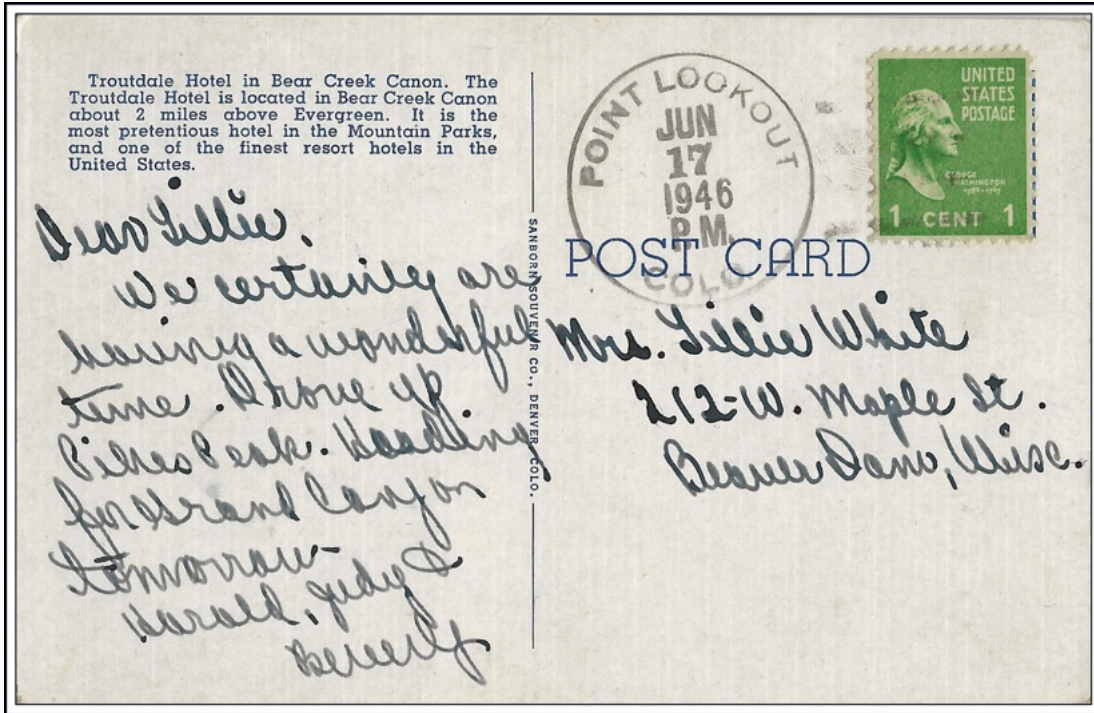 Troutdale Hotel in Bear Creek Canon. The
Troutdale Hotel is located in Bear Creek Canon
about 2 miles above Evergreen. It is the
most pretentious hotel in the Mountain Parks,
and one of the finest resort hotels in the
United States.
Dear Lillie.
We certainly are
having a wonderful
time. Drove up
Pikes Peak. Heading
for Grand Canyon
tomorrow-
Harold, Judy &
Beverly
SANBORN SOUVENIR CO., DENVER, COLO.
POINT LOOKOUT
JUN
17
1946
P.M.
COLO.
UNITED
STATES
POSTAGE
GEORGE
WASHINGTON
1789-1797
1 CENT 1
POST CARD
Mrs. Lillie White
212-W. Maple St.
Beaver Dam, Wisc.